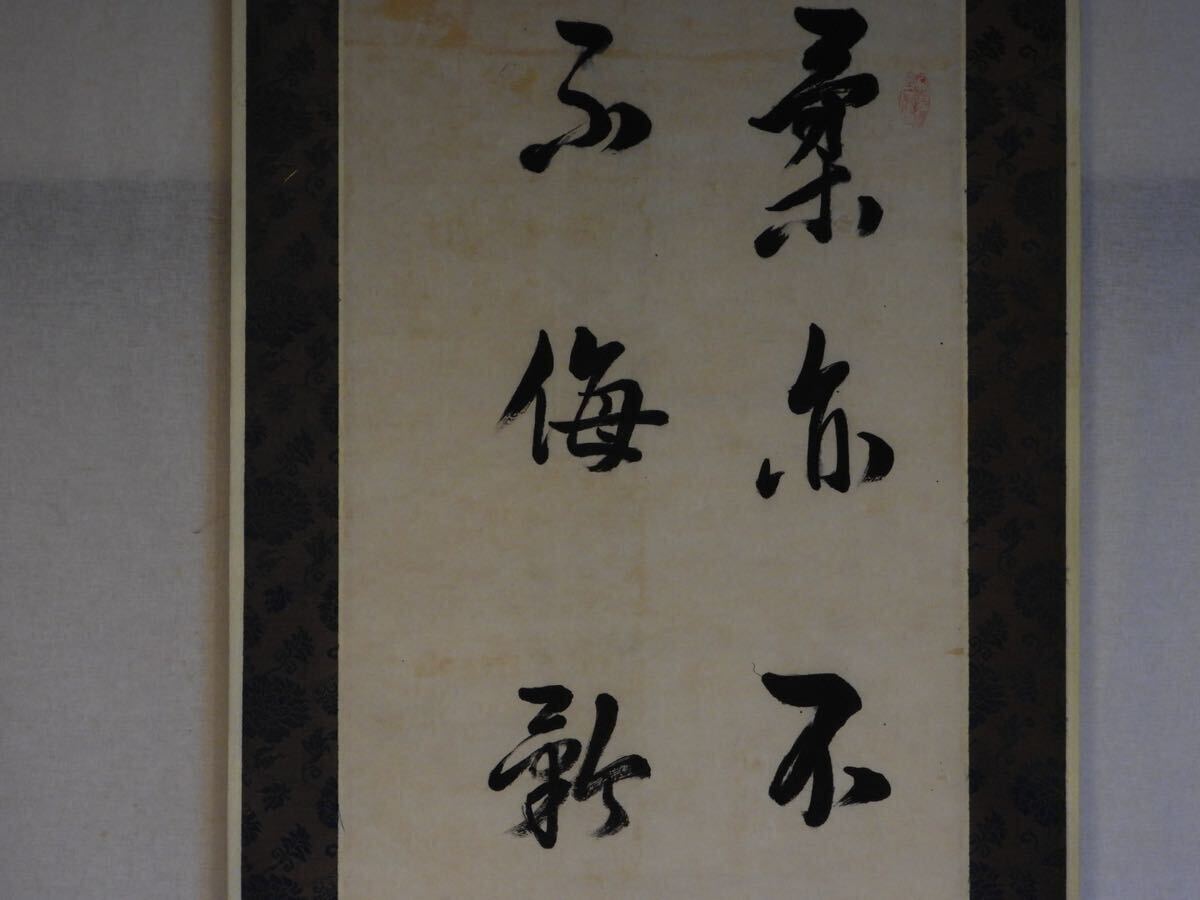 柔亦不
不侮矜